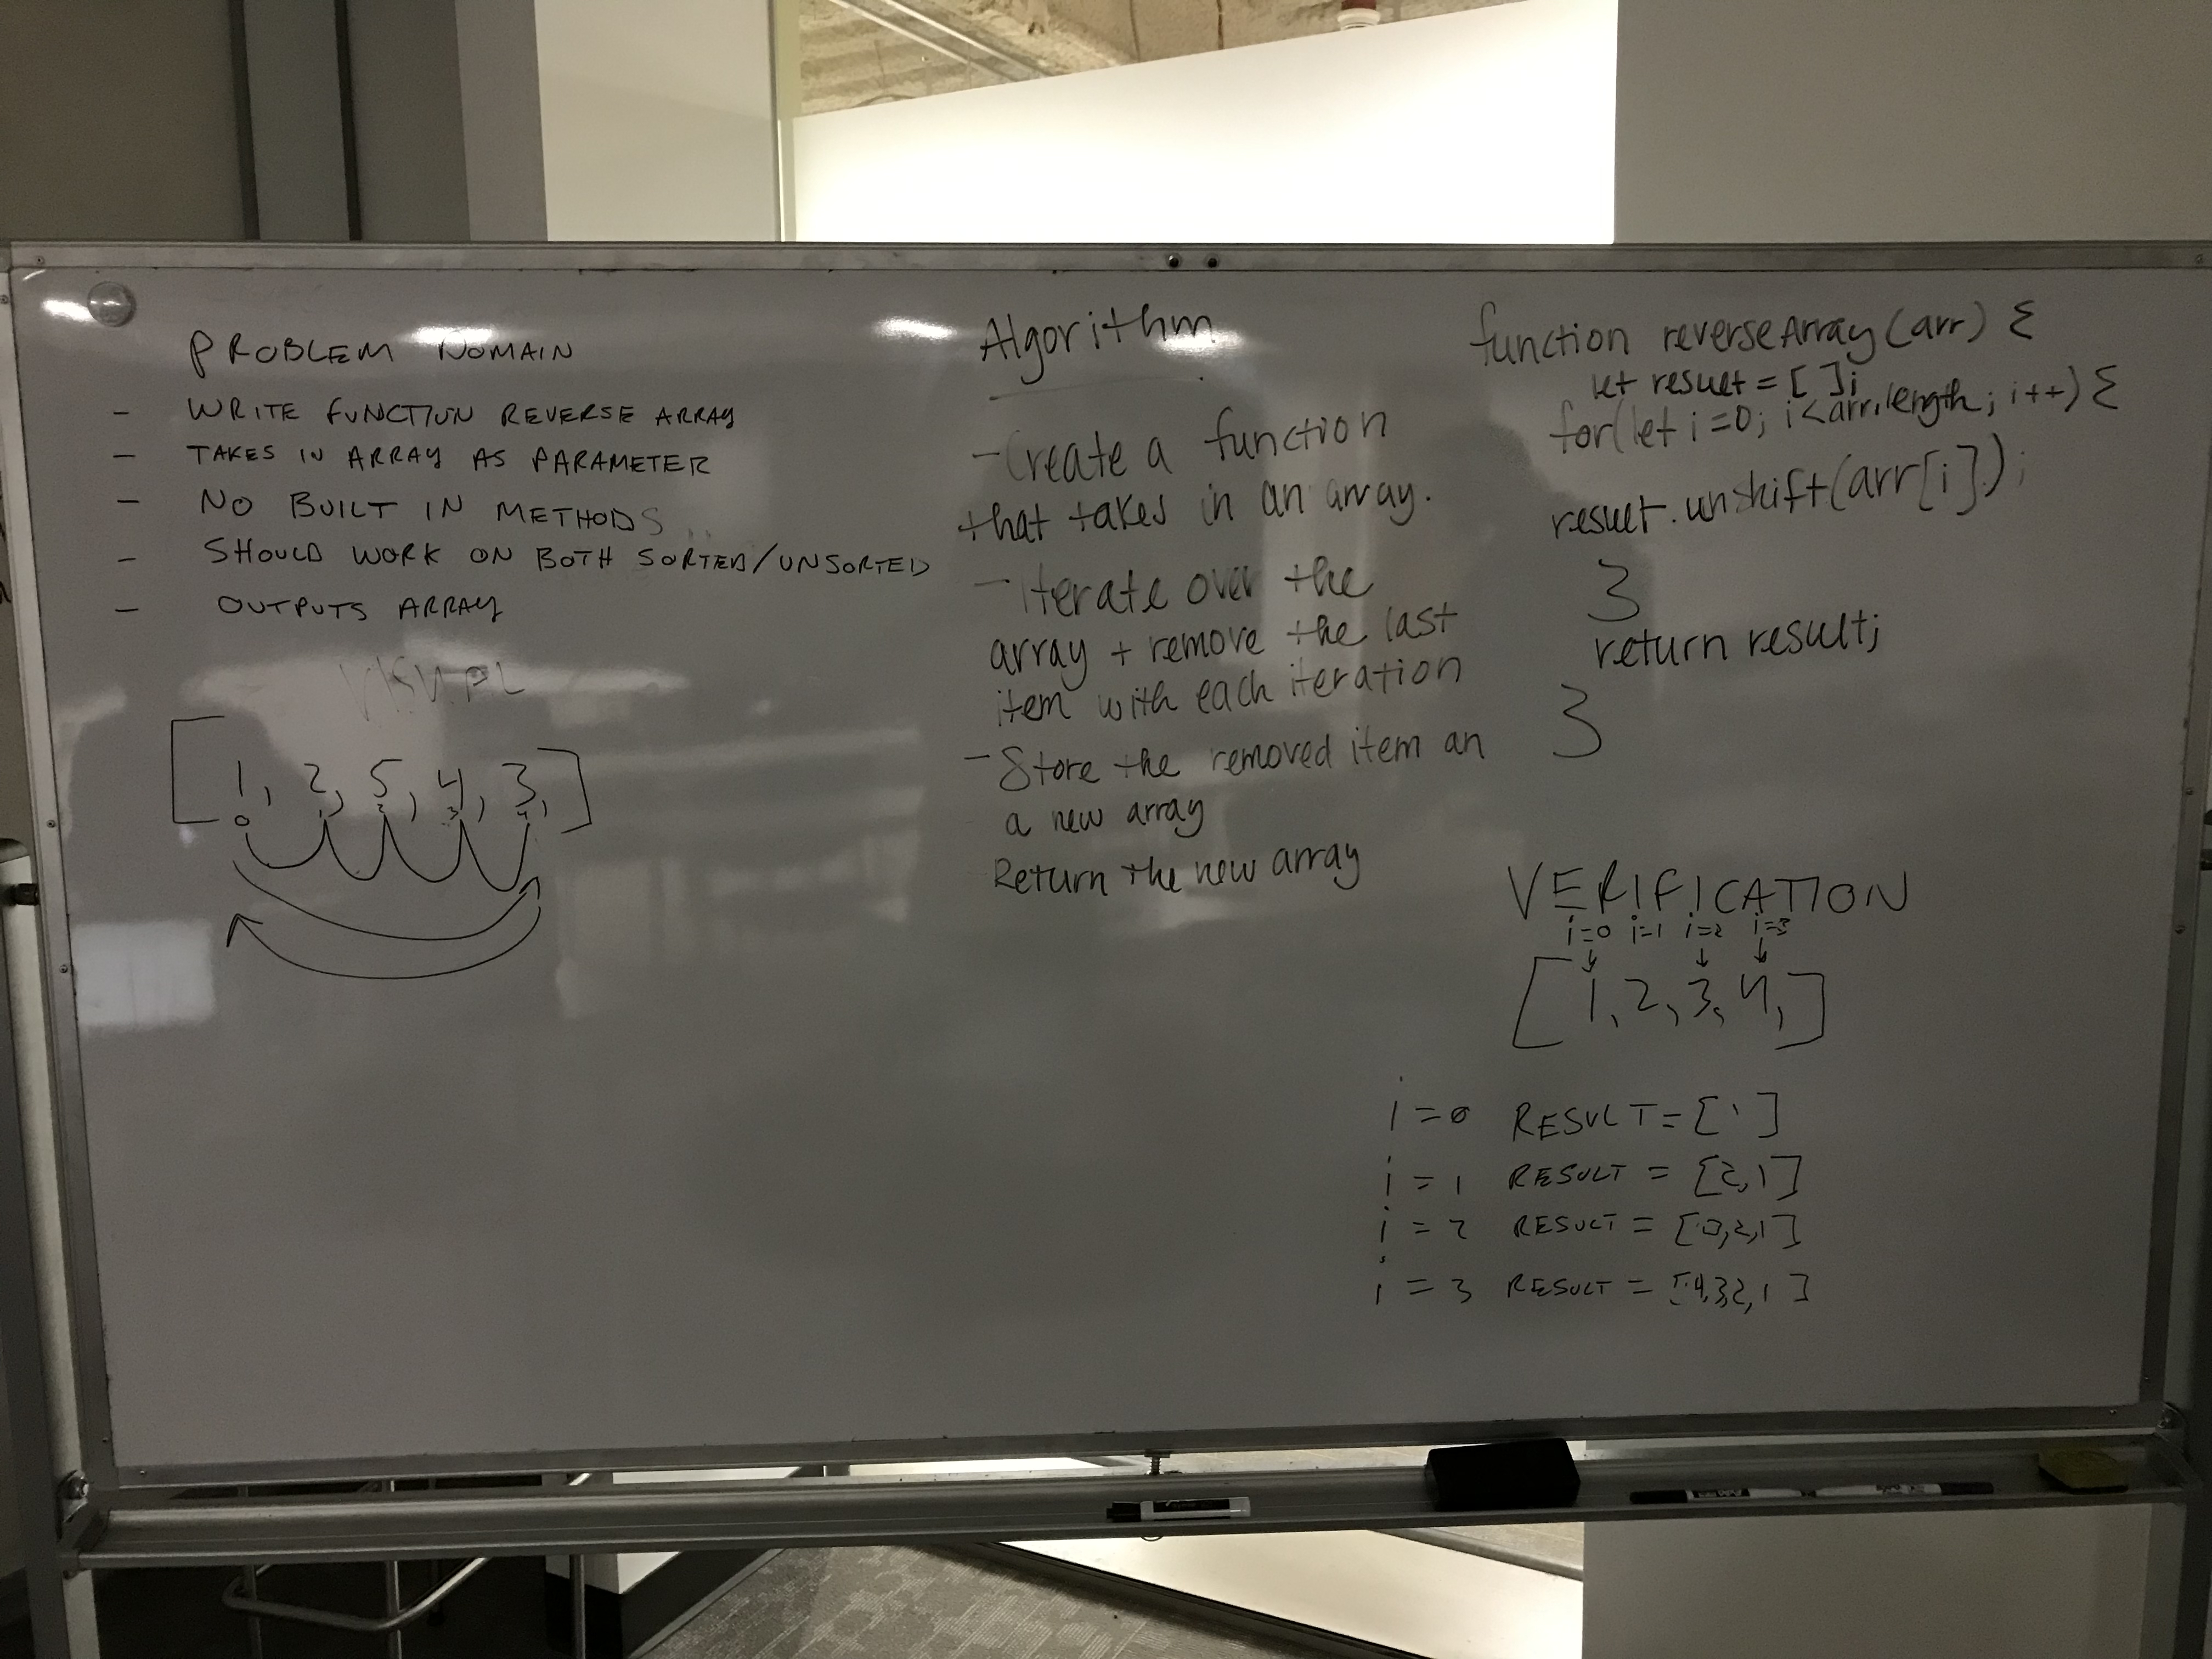 PROBLEM DOMAIN
- WRITE FUNCTION REVERSE ARRAY
- TAKES IN ARRAY AS PARAMETER
- NO BUILT IN METHODS
- SHOULD WORK ON BOTH SORTED/UNSORTED
- OUTPUTS ARRAY
VISUAL
[1, 2, 5, 4, 3,]
0 1 2 3 4
Algorithm
- Create a function
that takes in an array.
- Iterate over the
array + remove the last
item with each iteration
- Store the removed item an
a new array
Return the new array
function reverseArray(arr) {
let result = [ ];
for(let i=0; i<arr.length; i++) {
result.unshift(arr[i]);
}
return result;
}
VERIFICATION
i=0 i=1 i=2 i=3
[1, 2, 3, 4,]
i = 0 RESULT = [1]
i = 1 RESULT = [2,1]
i = 2 RESULT = [3,2,1]
i = 3 RESULT = [4,3,2,1]